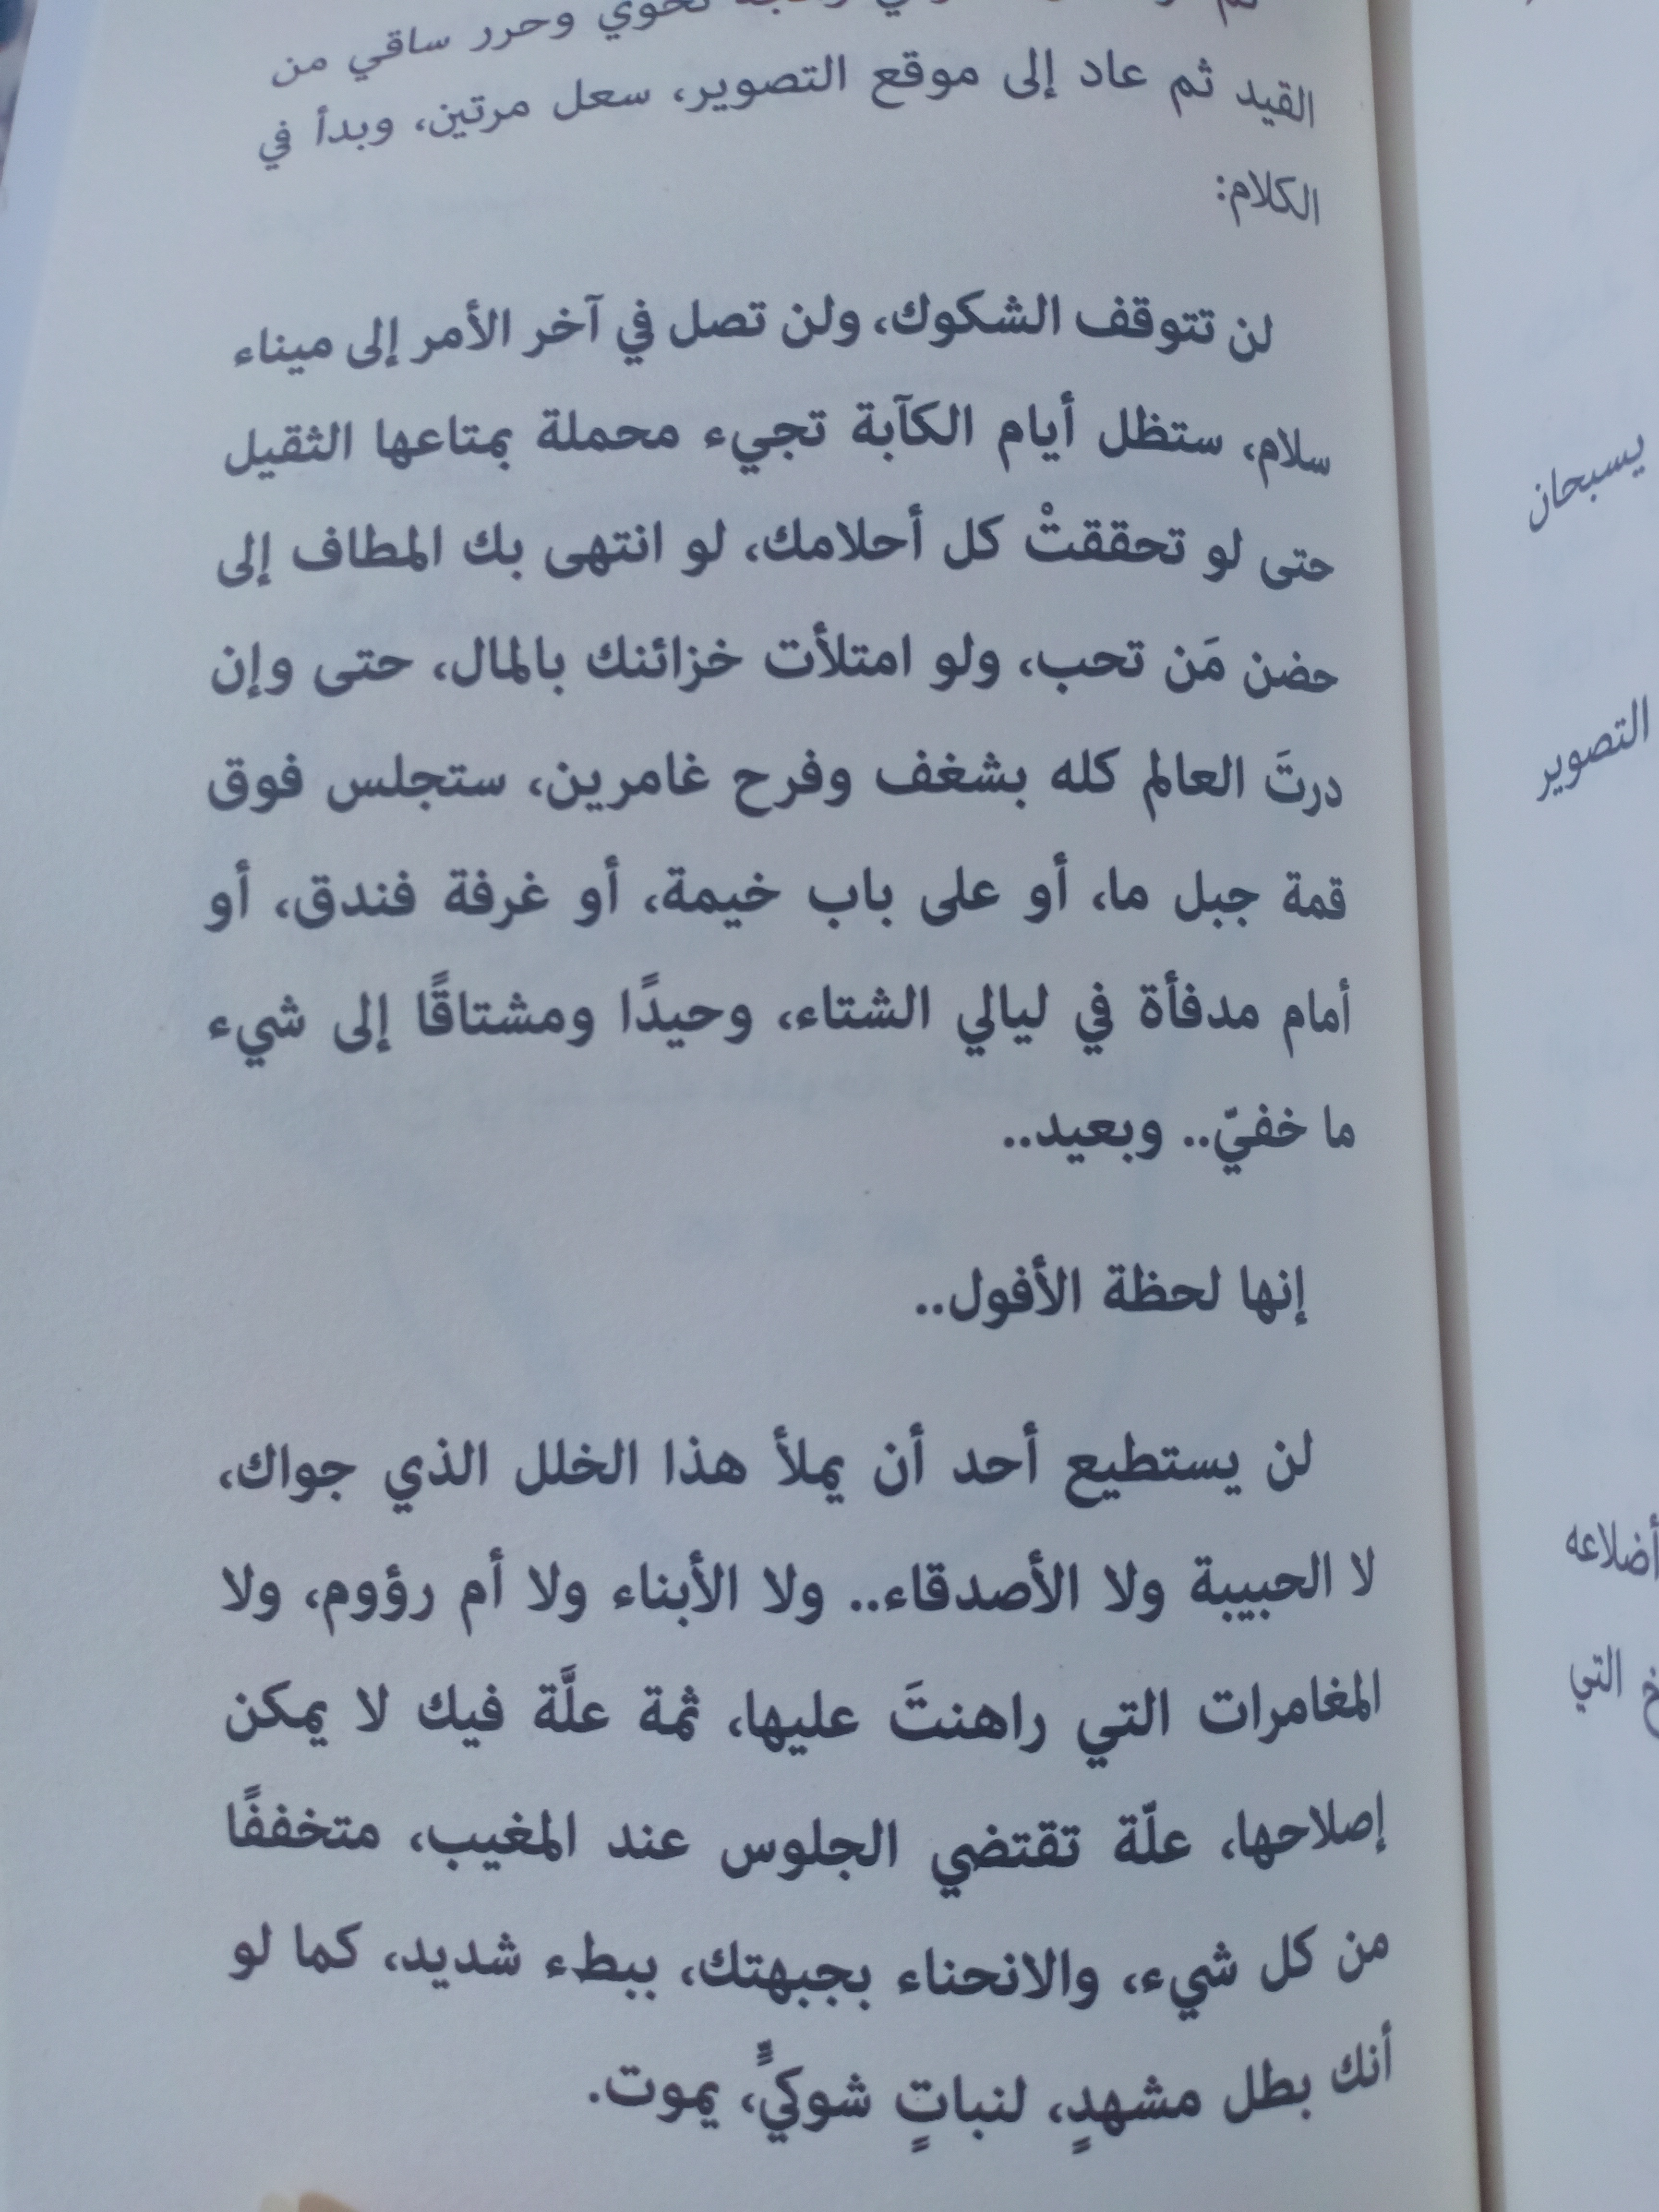 نحوي وحرر ساقي من
القيد ثم عاد إلى موقع التصوير، سعل مرتين، وبدأ في
الكلام:
لن تتوقف الشكوك، ولن تصل في آخر الأمر إلى ميناء
سلام، ستظل أيام الكآبة تجيء محملة بمتاعها الثقيل
حتى لو تحققتْ كل أحلامك، لو انتهى بك المطاف إلى
حضن مَن تحب، ولو امتلأت خزائنك بالمال، حتى وإن
درتَ العالم كله بشغف وفرح غامرين، ستجلس فوق
قمة جبل ما، أو على باب خيمة، أو غرفة فندق، أو
أمام مدفأة في ليالي الشتاء، وحيدًا ومشتاقًا إلى شيء
ما خفيّ.. وبعيد..
إنها لحظة الأفول..
لن يستطيع أحد أن يملأ هذا الخلل الذي جواك،
لا الحبيبة ولا الأصدقاء.. ولا الأبناء ولا أم رؤوم، ولا
المغامرات التي راهنتَ عليها، ثمة علَّة فيك لا يمكن
إصلاحها، علّة تقتضي الجلوس عند المغيب، متخففًا
من كل شيء، والانحناء بجبهتك، ببطء شديد، كما لو
أنك بطل مشهدٍ، لنباتٍ شوكيًّ، يموت.
يسبحان
التصوير
أضلاعه
التي